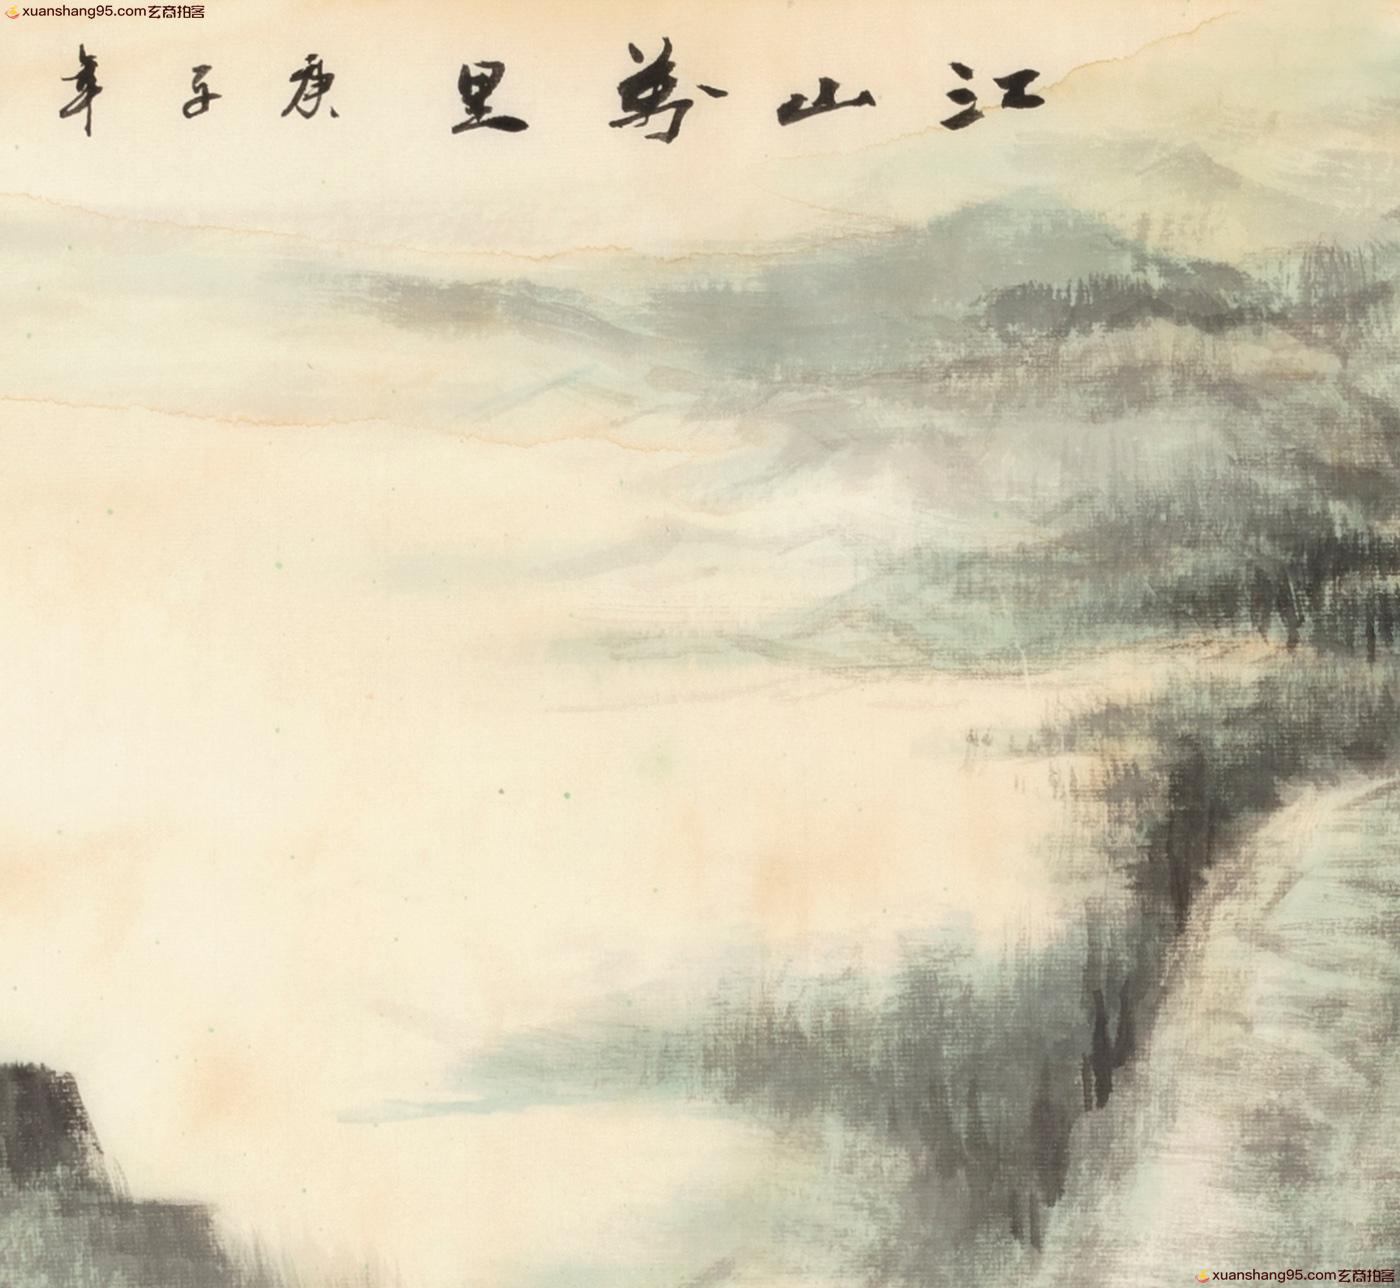 xuanshang95.com玄商拍客
江山萬里 庚子年
xuanshang95.com玄商拍客